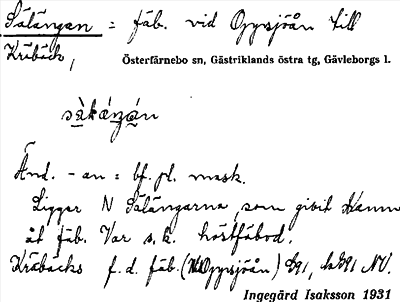 Sälängan = fäb. vid Oppsjöån till
Kräbäck,
Österfärnebo sn, Gästriklands östra tg, Gävleborgs l.
Änd. -an = bf. pl. mask.
Ligger N Sälängarna, som givit namn
åt fäb. Var s.k. höstfäbod.
Kräbäcks f.d. fäb. (vid Oppsjöån) NV.
Ingegärd Isaksson 1931